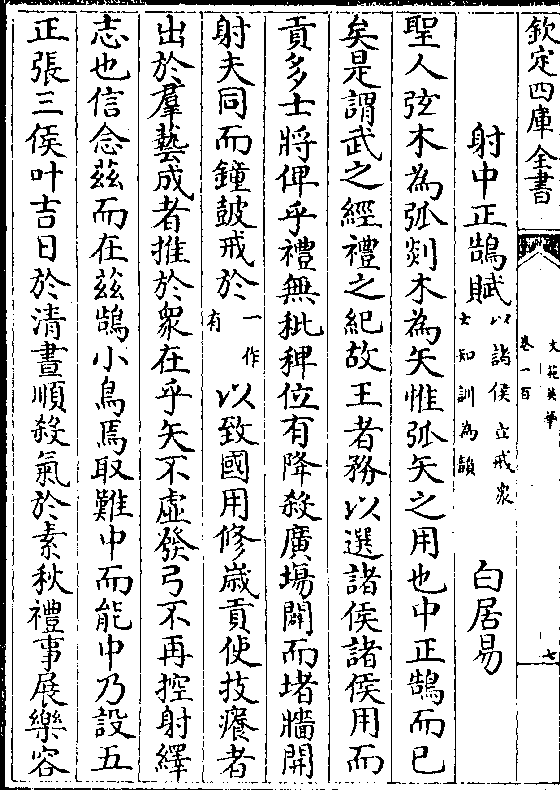 欽定四庫全書
文苑英華
卷一百
七
射中正鵠賦以諸侯立戒衆
士知訓為韻
白居易
聖人弦木為弧剡木為矢惟弧矢之用也中正鵠而已
矣是謂武之經禮之紀故王者務以選諸侯諸侯用而
貢多士將俾乎禮無秕稗位有降殺廣場闢而堵牆開
射夫同而鐘鼓戒於一作
有以致國用修歲貢使技癢者
出於羣藝成者推於衆在乎矢不虛發弓不再控射繹
志也信念茲而在茲鵠小鳥焉取難中而能中乃設五
正張三侯叶吉日於清晝順殺氣於素秋禮事展樂容